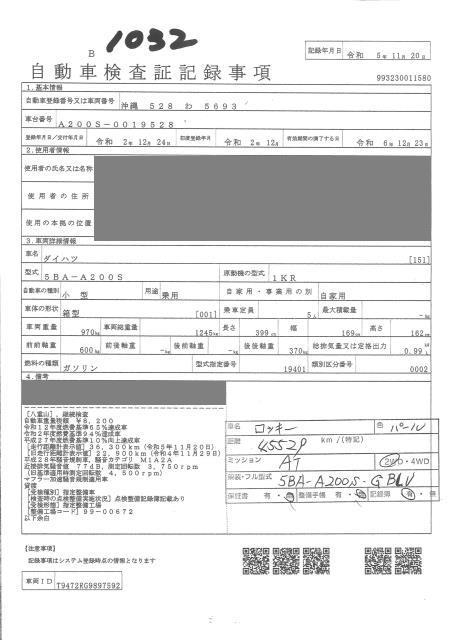 B 1032
記録年月日 令和 5年 11月 20日
自動車検査証記録事項 993230011580
1.基本情報
自動車登録番号又は車両番号 沖縄 528 わ 5693
車台番号 A200S-0019528
登録年月日/交付年月日 令和 2年 12月 24日 初度登録年月 令和 2年 12月 有効期間の満了する日 令和 6年 12月 23日
2.使用者情報
使用者の氏名又は名称
使用者の住所
使用の本拠の位置
3.車両詳細情報
車名 ダイハツ [151]
型式 5BA-A200S 原動機の型式 1KR
自動車の種別 小型 用途 乗用 自家用・事業用の別 自家用
車体の形状 箱型 [001] 乗車定員 5人 最大積載量 -kg
車両重量 970kg 車両総重量 1245kg 長さ 399cm 幅 169cm 高さ 162cm
前前軸重 600kg 前後軸重 -kg 後前軸重 -kg 後後軸重 370kg 総排気量又は定格出力 0.99
燃料の種類 ガソリン 型式指定番号 19401 類別区分番号 0002
4.備考
[八重山],継続検査
自動車重量税額 ¥8,200
令和12年度燃費基準65%達成車
令和2年度燃費基準94%達成車
平成27年度燃費基準10%向上達成車
[走行距離計表示値] 36,300km(令和5年11月20日)
[旧走行距離計表示値] 22,900km(令和4年11月29日)
平成28年騒音規制車,騒音カテゴリ M1A2A
近接排気騒音値 77dB,測定回転数 3,750rpm
(旧基準適用時測定回転数 4,500rpm)
マフラー加速騒音規制適用車
貸渡
[受検種別]指定整備車
[検査時の点検整備実施状況]点検整備記録簿記載あり
[受検形態]指定整備工場
[整備工場コード]99-00672
以下余白
車名 ロッキー 色 パール
距離 45529 km/(特記)
ミッション AT 2WD・4WD
車検・フル型式 5BA-A200S-GBLV
保証書 有・無 整備手帳 有・無 記録簿 有・無
【注意事項】
記録事項はシステム登録時点の情報となります
車両ID T9472RG9897592